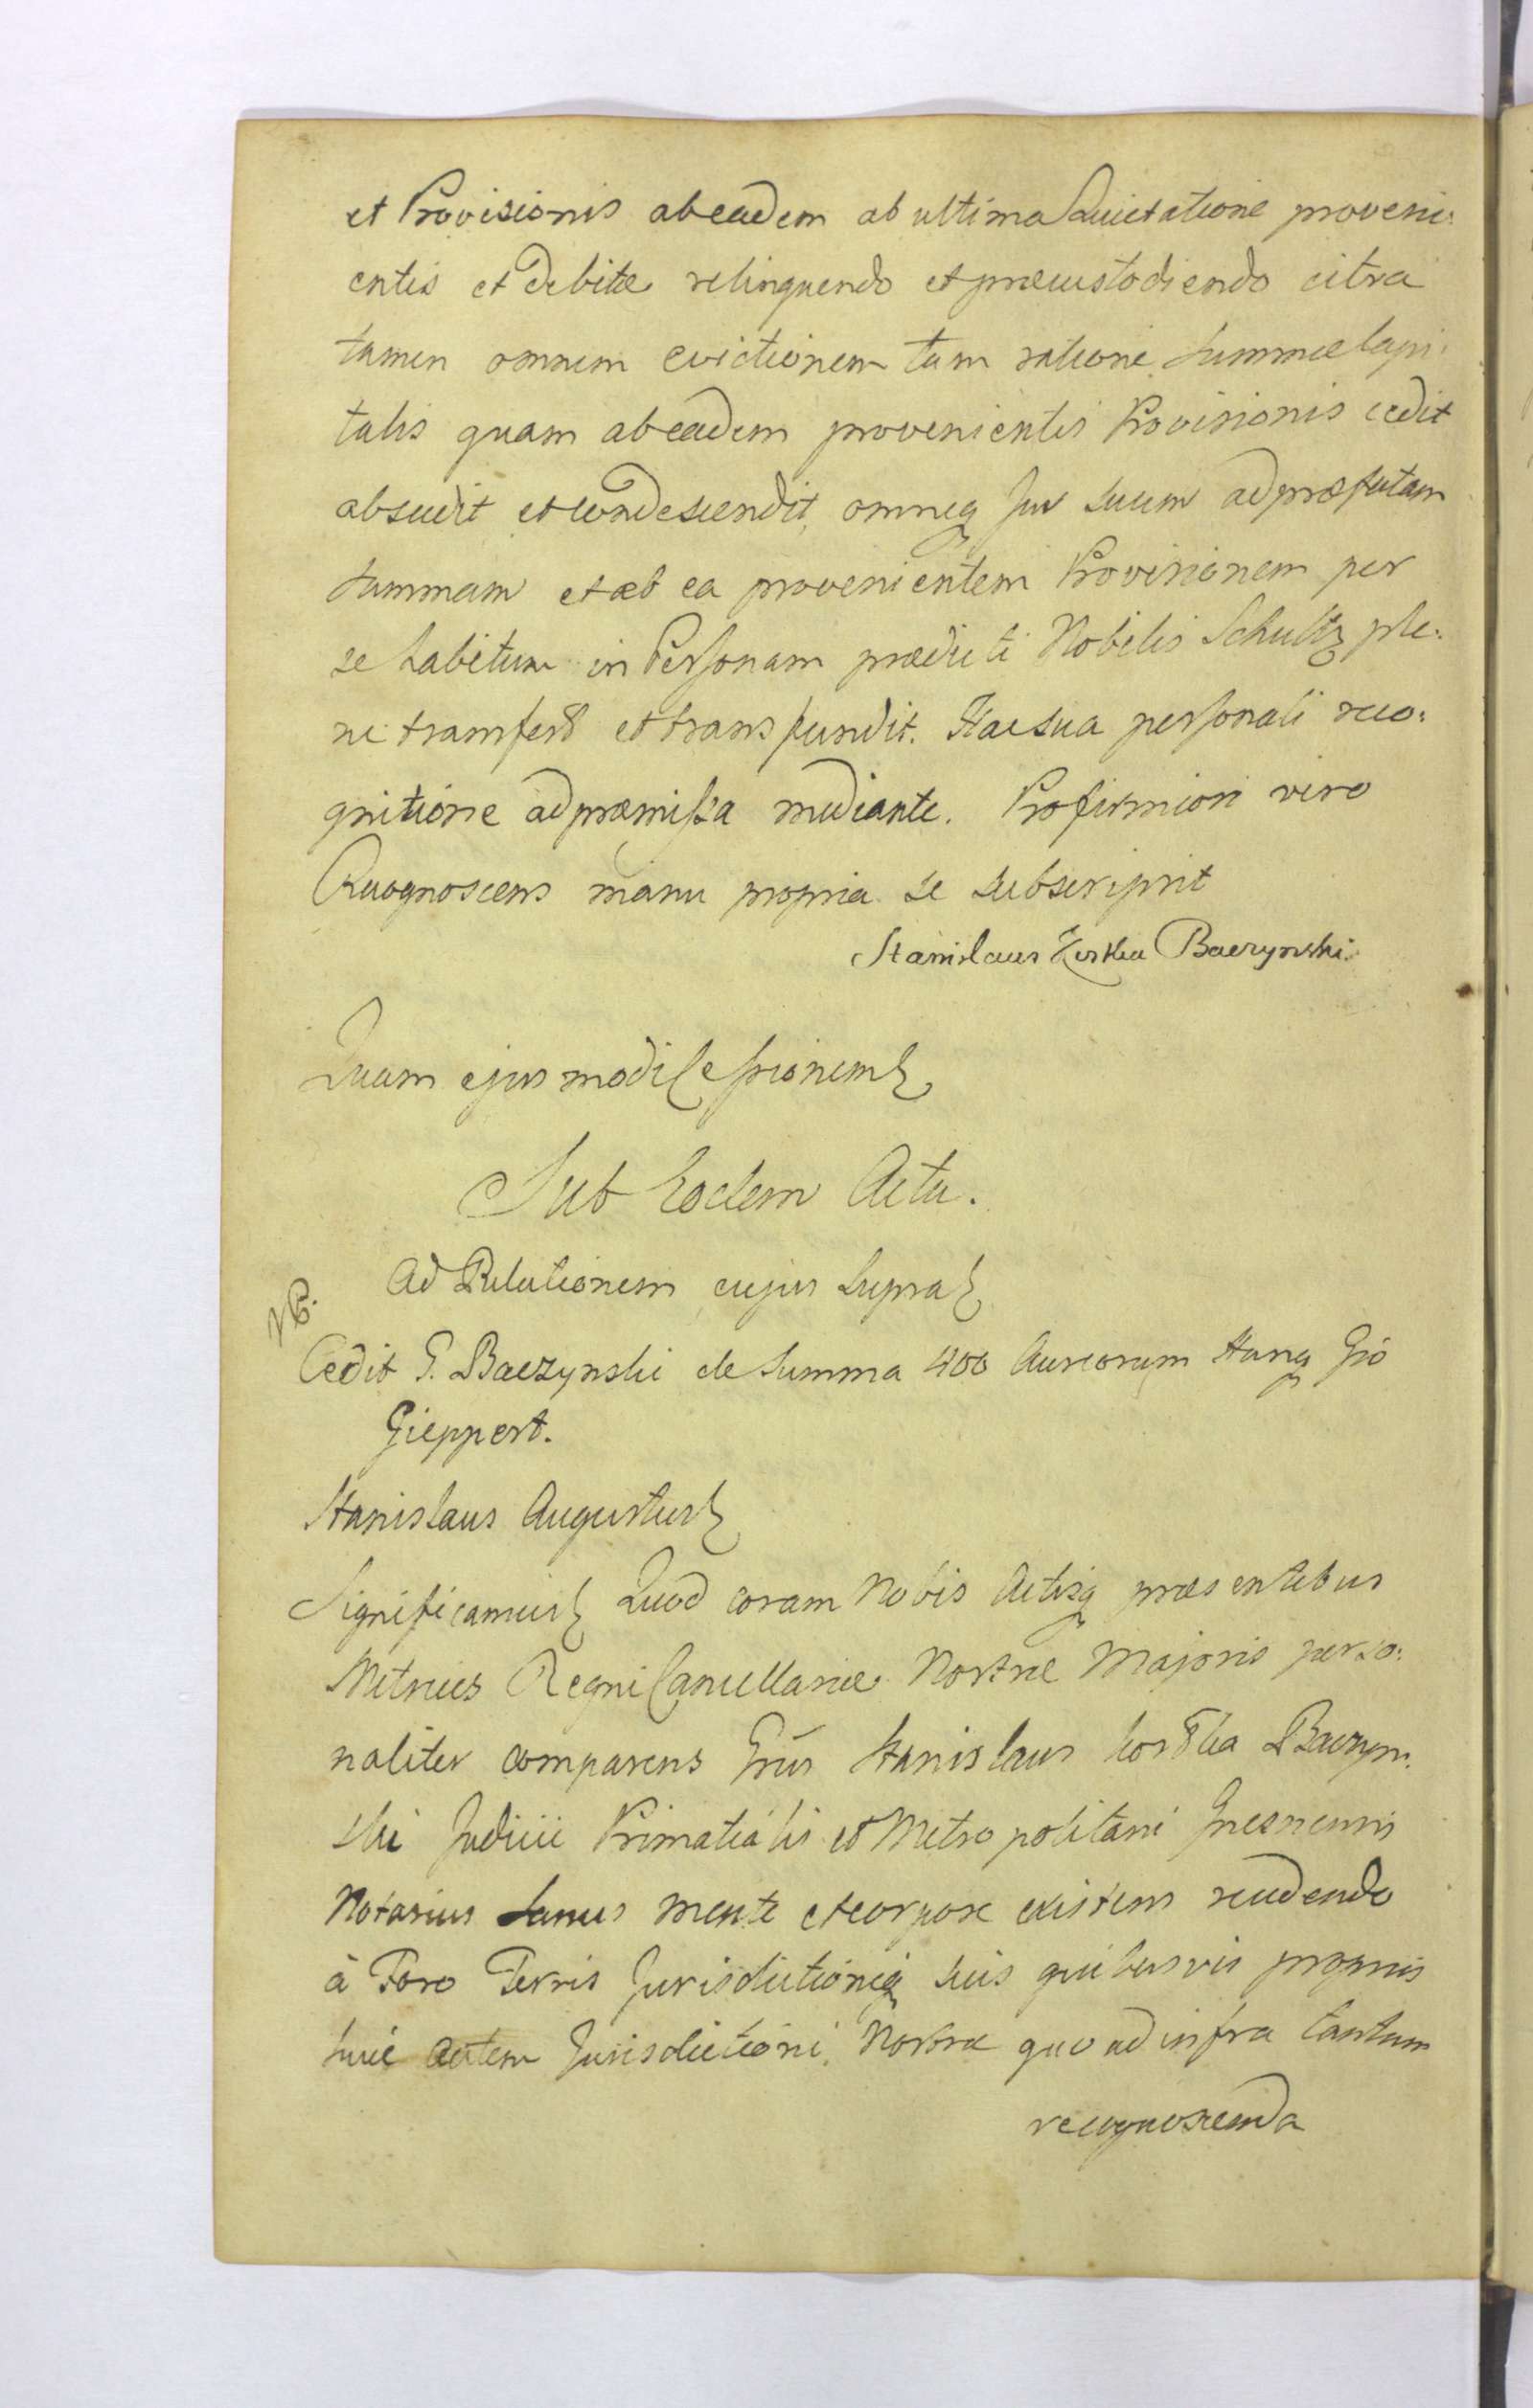 et Provisionis ab eadem ab ultima Quietatione proveni:
entis et debitæ relinquendo et præcustodiendo citra
tamen omnem evictionem tam ratione Summæ Capi:
talis quam ab eadem provenientis Provisionis cedit
abscedit et condescendit, omneq Jus suum ad præfatam
Summam et ab ea provenientem Provisionem per
se habitum in Personam prædicti Nobilis Schultz ple:
ne transfert et transfundit. Hac sua personali reco:
gnitione ad præmissa mediante. Pro firmiori vero
Recognoscens manu propria se subscripsit
Stanislaus Baczynski.
Quam ejusmodi Cessionem
Sub Eodem Actu.
Ad Relationem cujus Supra
NB.
Cedit G. Baczynski de Summa 400 Aureorum Hung Gso
Gieppert.
Stanislaus Augustus
Significamus Quod coram Nobis Actisq præsentibus
Metrices Regni Cancellariæ Nostræ Majoris perso:
naliter comparens Grus Stanislaus Kostka Baczyn:
ski Judicii Primatialis et Metropolitani Gnesnensis
Notarius Sanus mente et corpore existens recedendo
à Foro Terris Jurisdictioneq suis quibusvis propriis
huic autem Jurisdictioni Nostræ quo ad infra tantum
recognoscenda